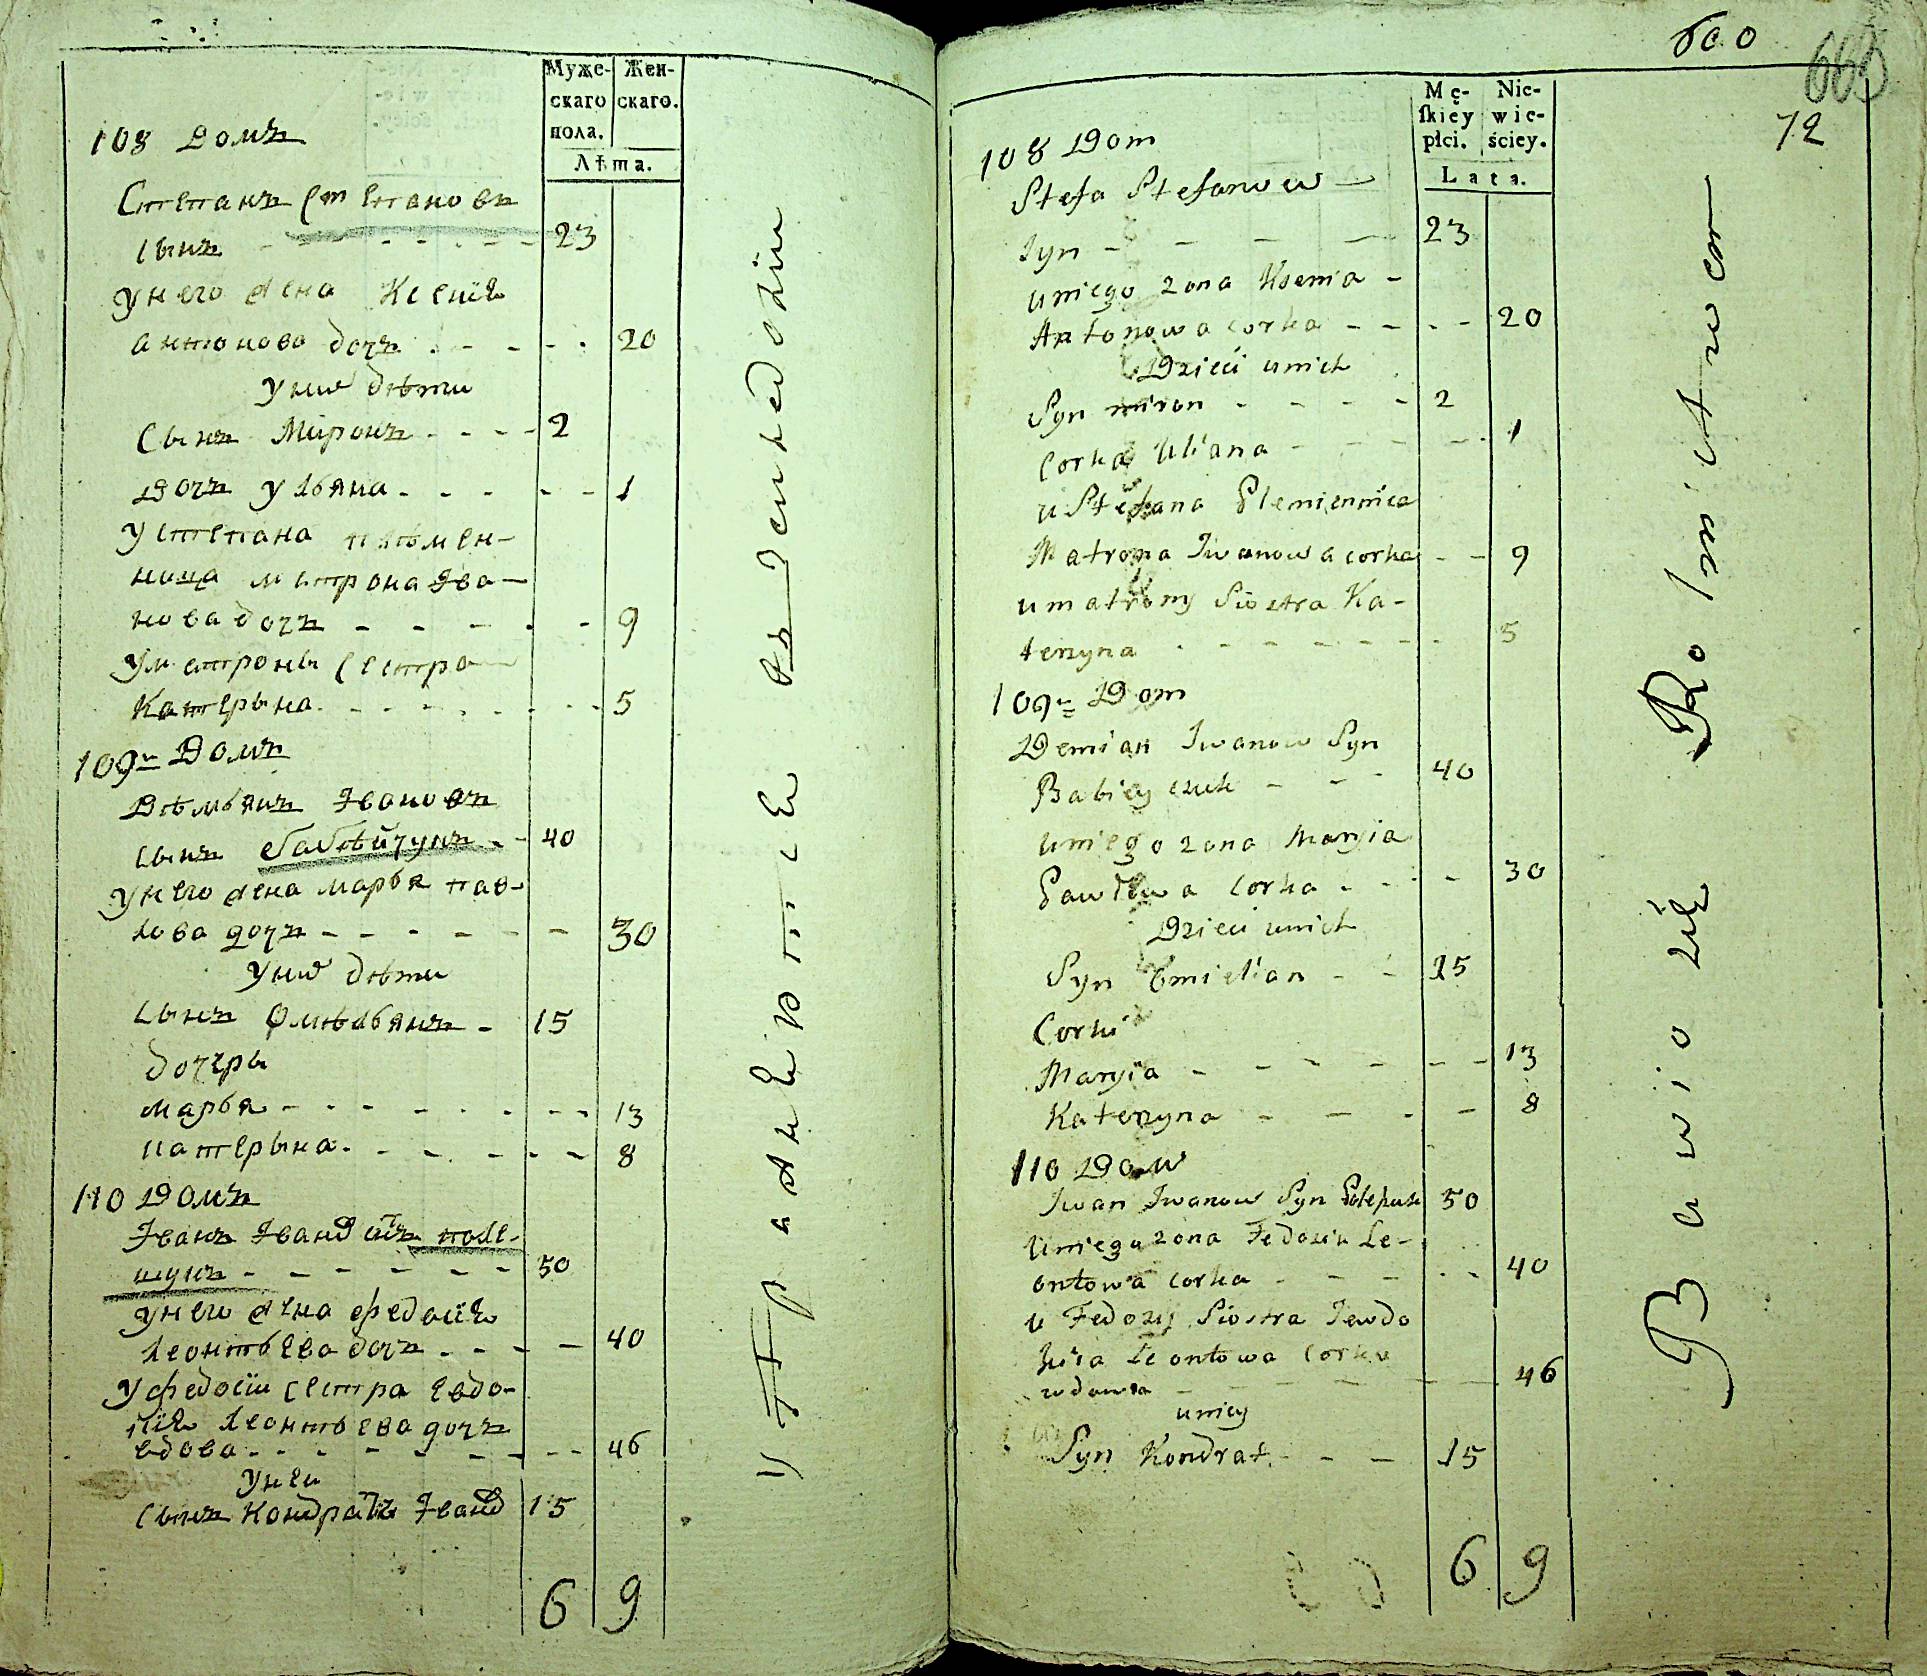 Муже-
скаго
пола.
Жен-
скаго.
Лѣта.
108 Домъ
Степанъ Степановъ
сынъ - - - - - - 23
у него жена Ксенія
антонова дочъ - - - - 20
у них дѣти
Сынъ Миронъ - - - - 2
Дочъ Ульяна - - - - - 1
У степана племен-
ница матрона Ива-
нова дочъ - - - - - 9
У матроны сестра
Катерына - - - - - - - 5
109ъ Домъ
Дѣмьянъ Ивановъ
сынъ бабѣйчукъ - - 40
У него жена марья пав-
лова дочъ - - - - - - 30
У них дѣти
сынъ Омѣльянъ - 15
дочеры
марья - - - - - - - - 13
катерына - - - - - - 8
110 Домъ
Іванъ Іванов сынъ поле-
шукъ - - - - - - 50
у него жена федосія
леонтьева дочъ - - - - 40
У федосіи сестра Евдо-
кія леонтьева дочъ
вдова - - - - - - - - 46
У неи
сынъ Кондратъ Іванов 15
6 9
Упражняются въ земледѣліи
600
660
72
Mę-
ſkiey
płci.
Nie-
wie-
ściey.
Lata.
108 Dom
Stefa Stefanow
syn - - - - 23
u niego zona Ksenia -
Antonowa corka - - - - 20
Dzieci u nich
Syn miron - - - - 2
Corka Uliana - - - - - 1
u Stefana Plemiennica
Matrona Iwanowa corka - - 9
u matrony Siostra Ka-
terzyna - - - - - - - 5
109 Dom
Demian Iwanow Syn
Babiyczuk - - - 40
u niego zona Maryia
Pawłowa Corka - - - - 30
Dzieci u nich
Syn Emielian - - 15
Corki
Maryia - - - - - - - 13
Katerzyna - - - - 8
110 Dom
Iwan Iwanow Syn Poleszuk 50
U niego zona Fedosia Le-
ontowa corka - - - - - 40
u Fedosyi Siostra Iewdo
kia Leontowa Corka
wdowa - - - - - - - 46
u niey
Syn Kondrat - - - 15
6 9
Bawio się Rolnictwem